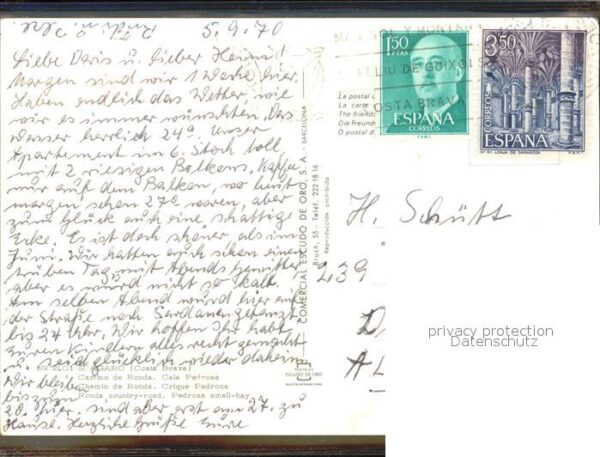 5.9.70
Liebe Doris u. lieber Helmut
Morgen sind wir 1 Woche hier.
Haben endlich das Wetter, wie
wir es immer wünschten. Das
Wasser herrlich 24° Unser
Apartement im 6. Stock toll
mit 2 riesigen Balkons. Kaffee
wir auf dem Balkon, wo heut
morgen schon 27° waren, aber
zum Glück auch eine schattige
Ecke. Es ist doch schöner als im
Juni. Wir hatten auch schon einen
trüben Tag mit Abends Gewitter
aber es wurde nicht so kalt.
Am selben Abend wurde hier auf
der Straße noch Sardana getanzt
bis 24 Uhr. Wir hoffen Ihr habt
zu ren Kindern alles recht gemacht
u. seid glücklich wieder daheim
Wir bleiben
bis zum
20. hier. sind aber erst am 27. zu
Hause. Herzliche Grüße Eure
Nº 2101 S'AGARO (Costa Brava)
Camino de Ronda. Cala Pedrosa
Chemin de Ronda. Crique Pedrosa
Ronda country-road. Pedrosa small-bay
COMERCIAL ESCUDO DE ORO, S. A. - BARCELONA
Bruch, 55 - Teléf. 222 18 16
Reproducción prohibida
ESCUDO DE ORO
La postal
La carte
The friend
Die Freund
O postal d
1,50
PTAS
ESPAÑA
CORREOS
3,50
PTAS
CORREOS
ESPAÑA
LONJA DE ZARAGOZA
F.N.M.T.
MAR SOL Y MONTAÑA
S. FELIU DE GUIXOLS
COSTA BRAVA
H. Schütt
239
D
AL
privacy protection
Datenschutz